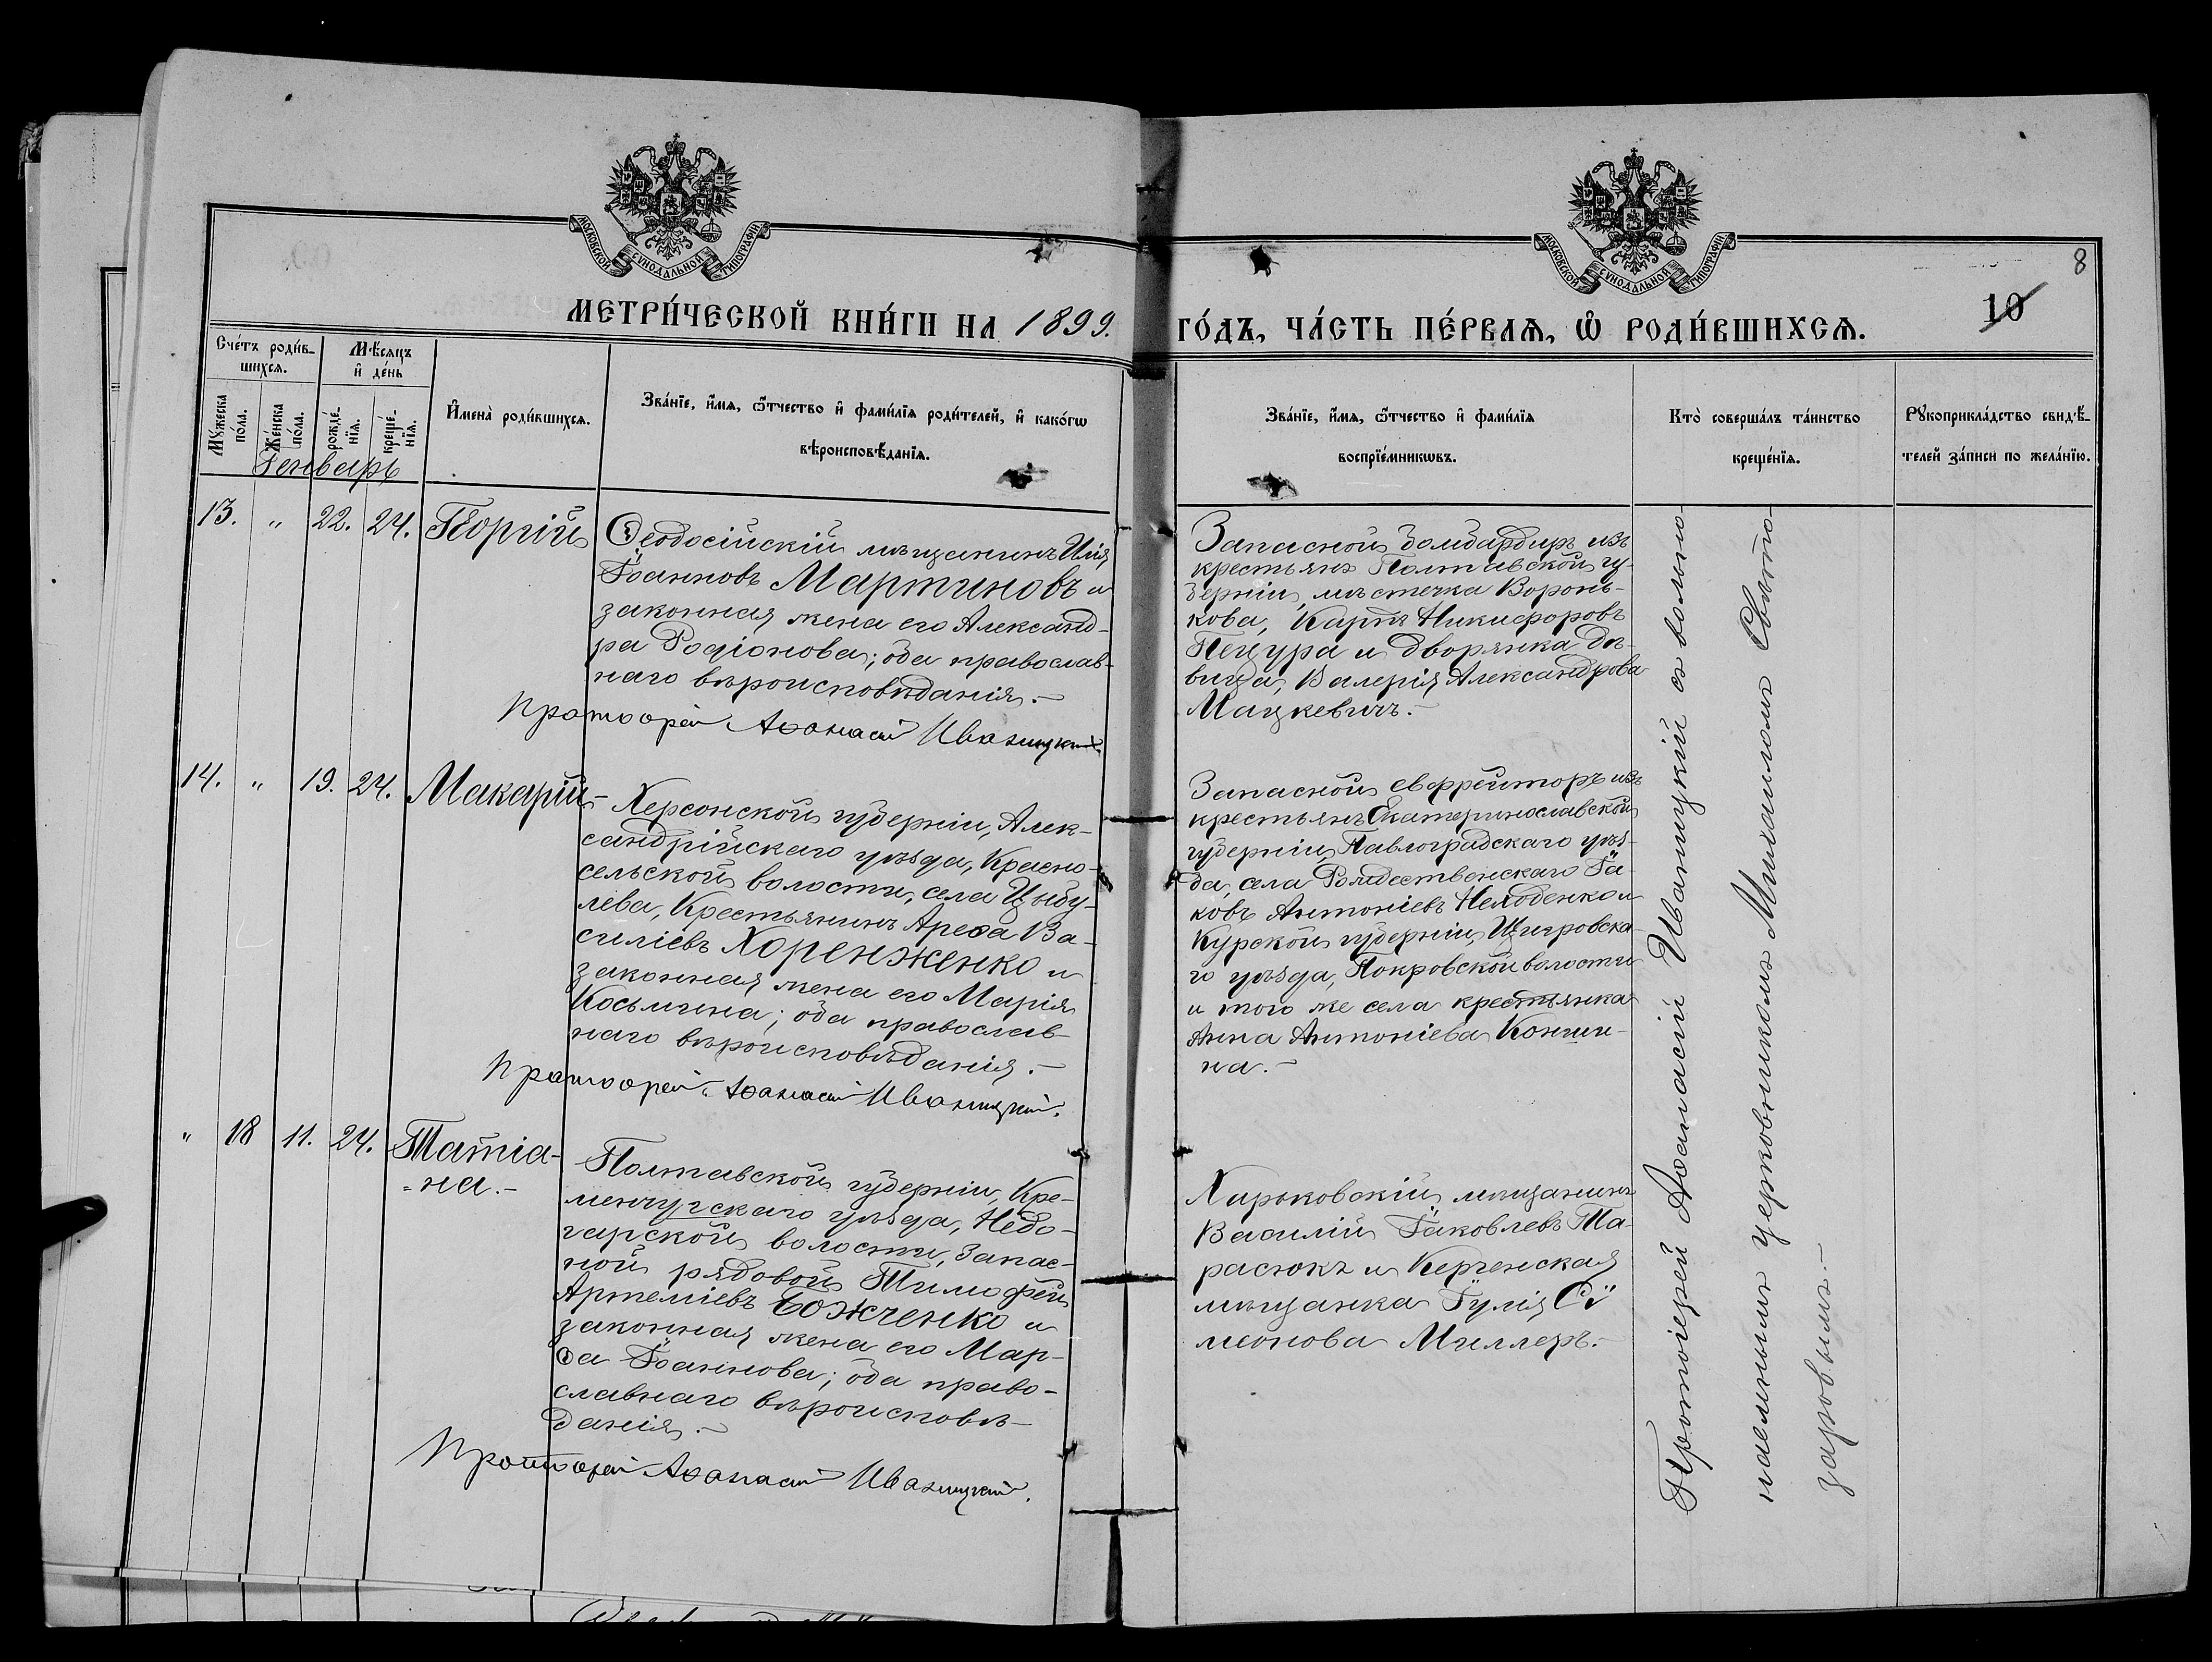 МОСКОВСКОЙ СУНОДАЛЬНОЙ ТИПОГРАФІИ
МОСКОВСКОЙ СУНОДАЛЬНОЙ ТИПОГРАФІИ
8
10
МЕТРИ́ЧЕСКОЙ КНИ́ГИ НА 1899. ГО́ДЪ, ЧА́СТЬ ПЕ́РВАЯ, Ѡ РОДИ́ВШИХСЯ.
Сче́тъ роди́в-
шихся.
Мѣсяцъ
и де́нь
Мꙋ́жеска
по́ла.
Же́нска
по́ла.
рожде́-
нїя.
креще́-
нїя.
Имена̀ роди́вшихся.
Зва́нїе, и́мя, ѻ́тчество и фами́лїя роди́телей, и како́гѡ
вѣроисповѣ́данїя.
Зва́нїе, и́мя, ѻ́тчество и фами́лїя
воспрїе́мникѡвъ.
Кто̀ соверша́лъ та́инство
креще́нїя.
Рꙋкоприкла́дство свидѣ́-
телей за́писи по жела́нїю.
Генварь
13. " 22. 24. Георгій
Ѳеодосійскій мѣщанинъ Илія
Іоанновъ Мартиновъ и
законная жена его Александ-
ра Родіонова; оба православ-
наго вѣроисповѣданія.-
Протоіерей Аѳанасій Иваницкій.
Запасной бомбардиръ изъ
крестьянъ Полтавской гу-
берніи, мѣстечка Воронь-
кова, Карпъ Никифоровъ
Пецура и дворянка дѣ-
вица, Валерія Александрова
Мацкевичъ.-
14. " 19. 24. Макарій-
Херсонской губерніи, Алек-
сандрійскаго уѣзда, Красно-
сельской волости, села Цыбу-
лева, Крестьянинъ Арефа Ва-
силіевъ Хоренженко и
законная жена его Марія
Косьмина; оба православ-
наго вѣроисповѣданія.-
Протоіерей Аѳанасій Иваницкій.
Запасной евфрейторъ изъ
крестьянъ Екатеринославской
губерніи, Павлоградскаго уѣз-
да, села Рождественскаго Іа-
ковъ Антоніевъ Нелюбенко и
Курской губерніи, Щигровска-
го уѣзда, Покровской волости
и того же села крестьянка
Анна Антоніева Кончин-
на.-
" 18 11. 24. Татіа-
=на.-
Полтавской губерніи, Кре-
менчугскаго уѣзда, Недо-
гарской волости, Запас-
ной рядовой Тимофей
Артеміевъ Божченко и
законная жена его Мар-
ѳа Іоаннова; оба право-
славнаго вѣроисповѣ-
данія.-
Протоіерей Аѳанасій Иваницкій.
Харьковскій мѣщанинъ
Василій Іаковлевъ Та-
расюкъ и Керченская
мѣщанка Іулія Сѵ-
меонова Миллеръ.-
Протоіерей Аѳанасій Иваницкій съ вольно-
наемнымъ церковникомъ Михаиломъ Свѣто-
заровымъ.-